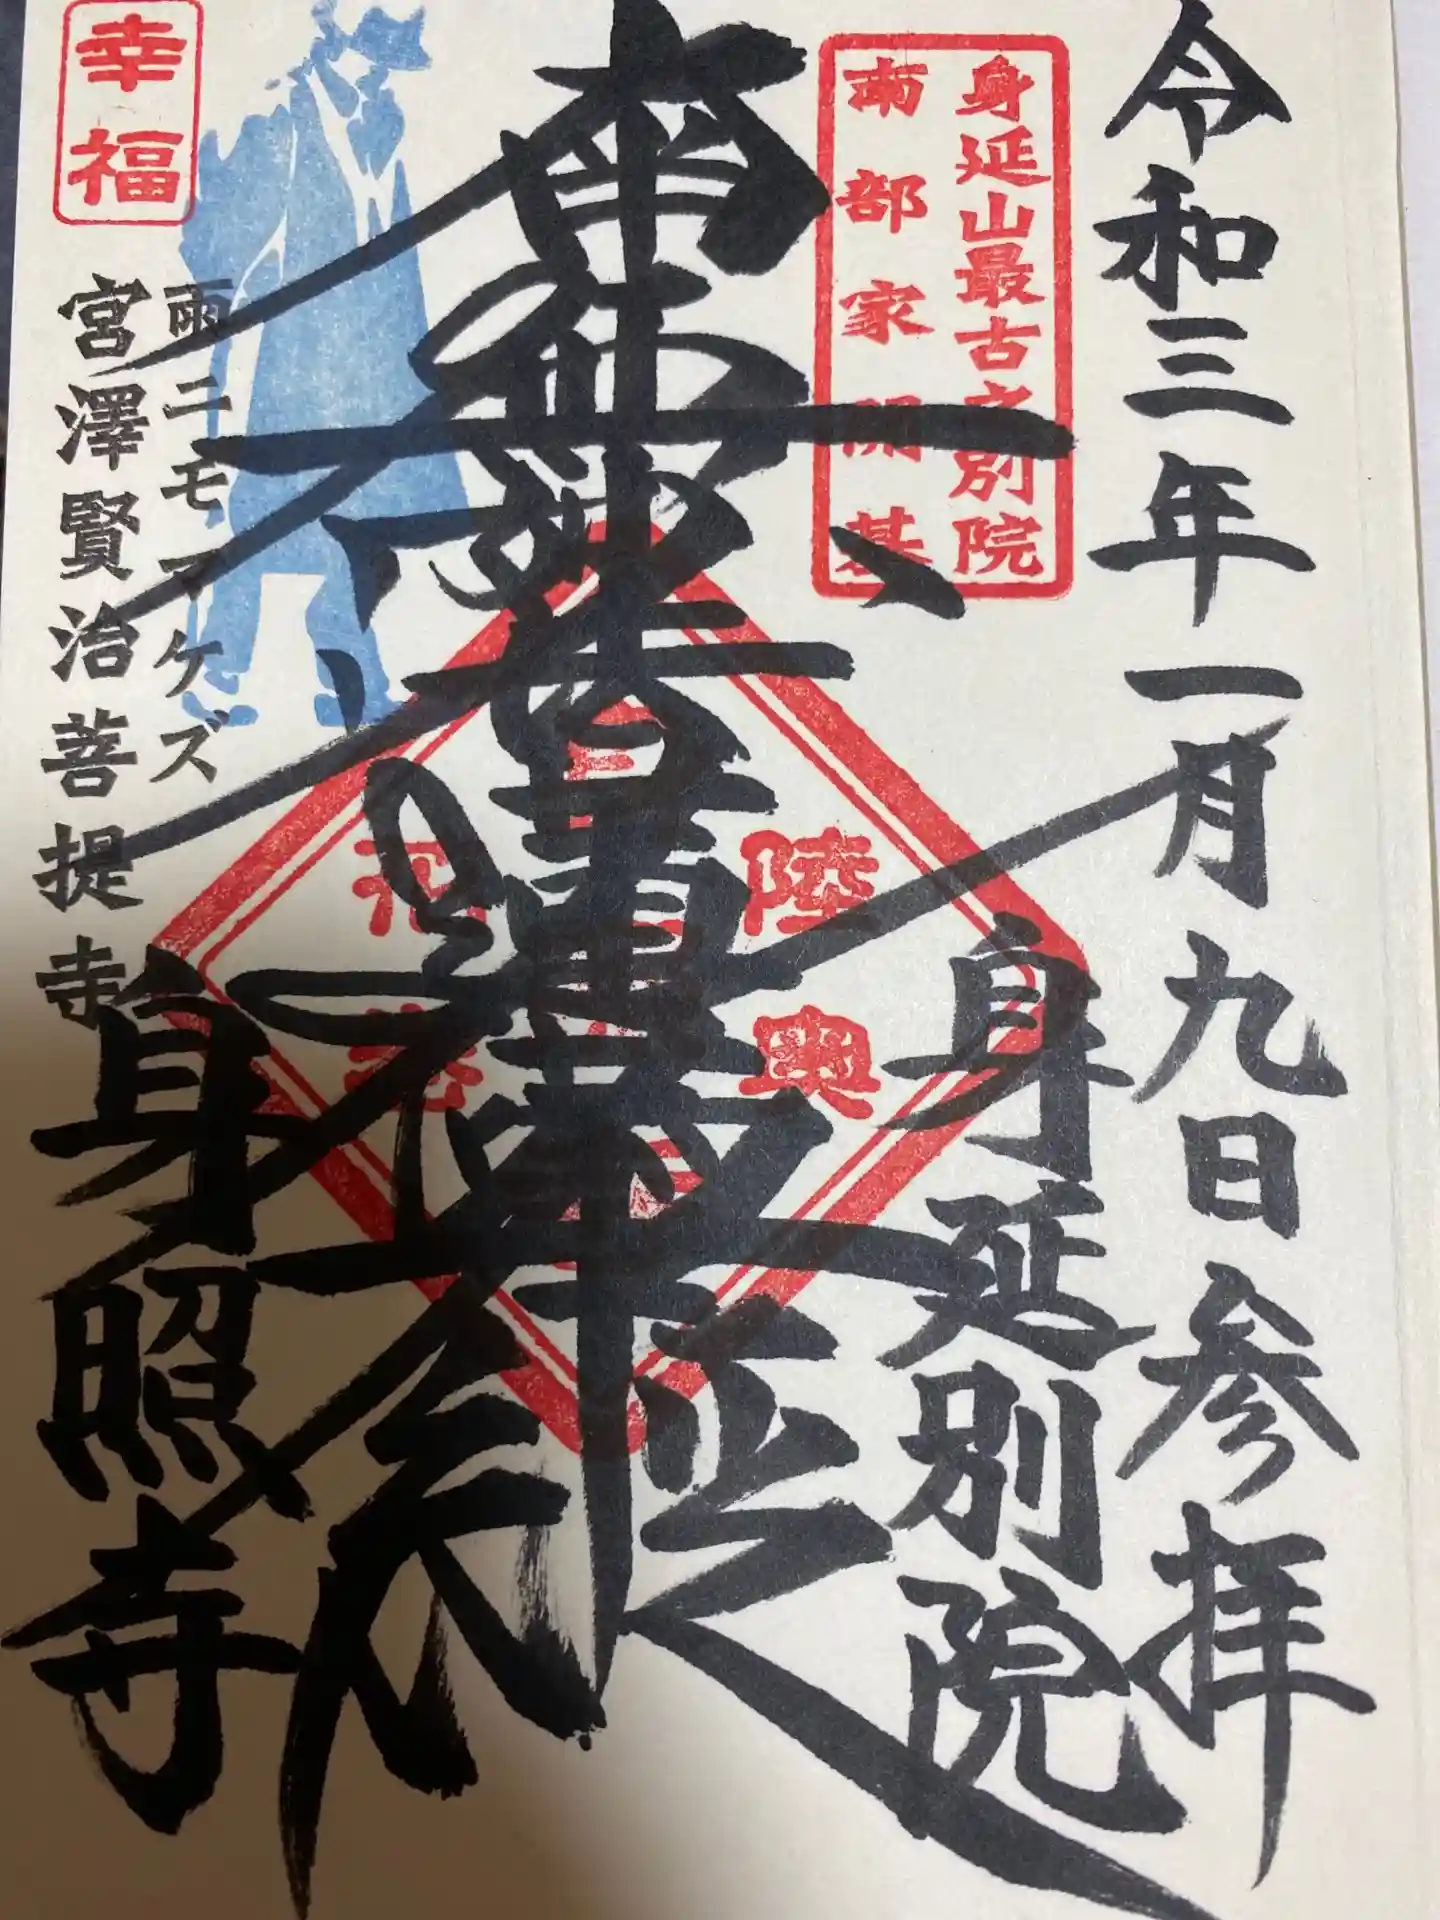 令和三年一月九日参拝
身延山最古之別院
南部家開基
身延別院
南無妙法蓮華経
陸奥
花巻
幸福
雨ニモマケズ
宮澤賢治菩提寺
身照寺